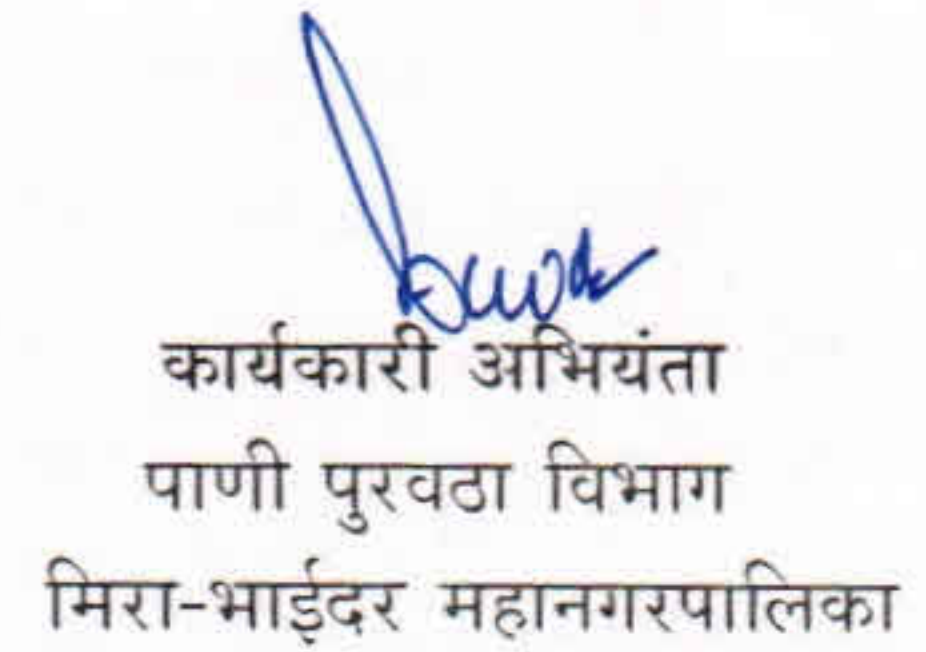 कार्यकारी अभियंता
पाणी पुरवठा विभाग
मिरा-भाईदर महानगरपालिका